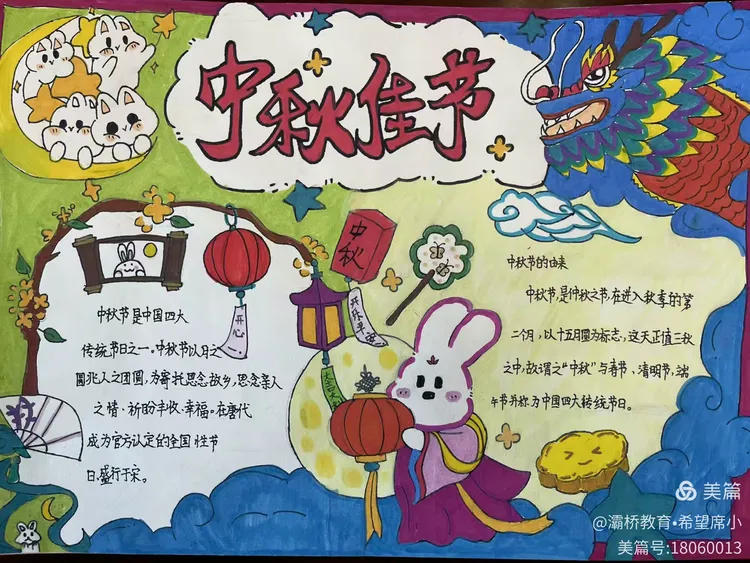 中秋佳节
中秋
开心
开乐平安
中秋节是中国四大
传统节日之一。中秋节以月之
圆兆人之团圆，为寄托思念故乡，思念亲人
之情，祈盼丰收、幸福。在唐代
成为官方认定的全国性节
日，盛行于宋。
中秋节的由来
中秋节，是仲秋之节，在进入秋季的第
二个月，以十五月圆为标志，这天正值三秋
之中，故谓之“中秋”与春节、清明节，端
午节并称为中国四大传统节日。
美篇
@灞桥教育•希望席小
美篇号:18060013